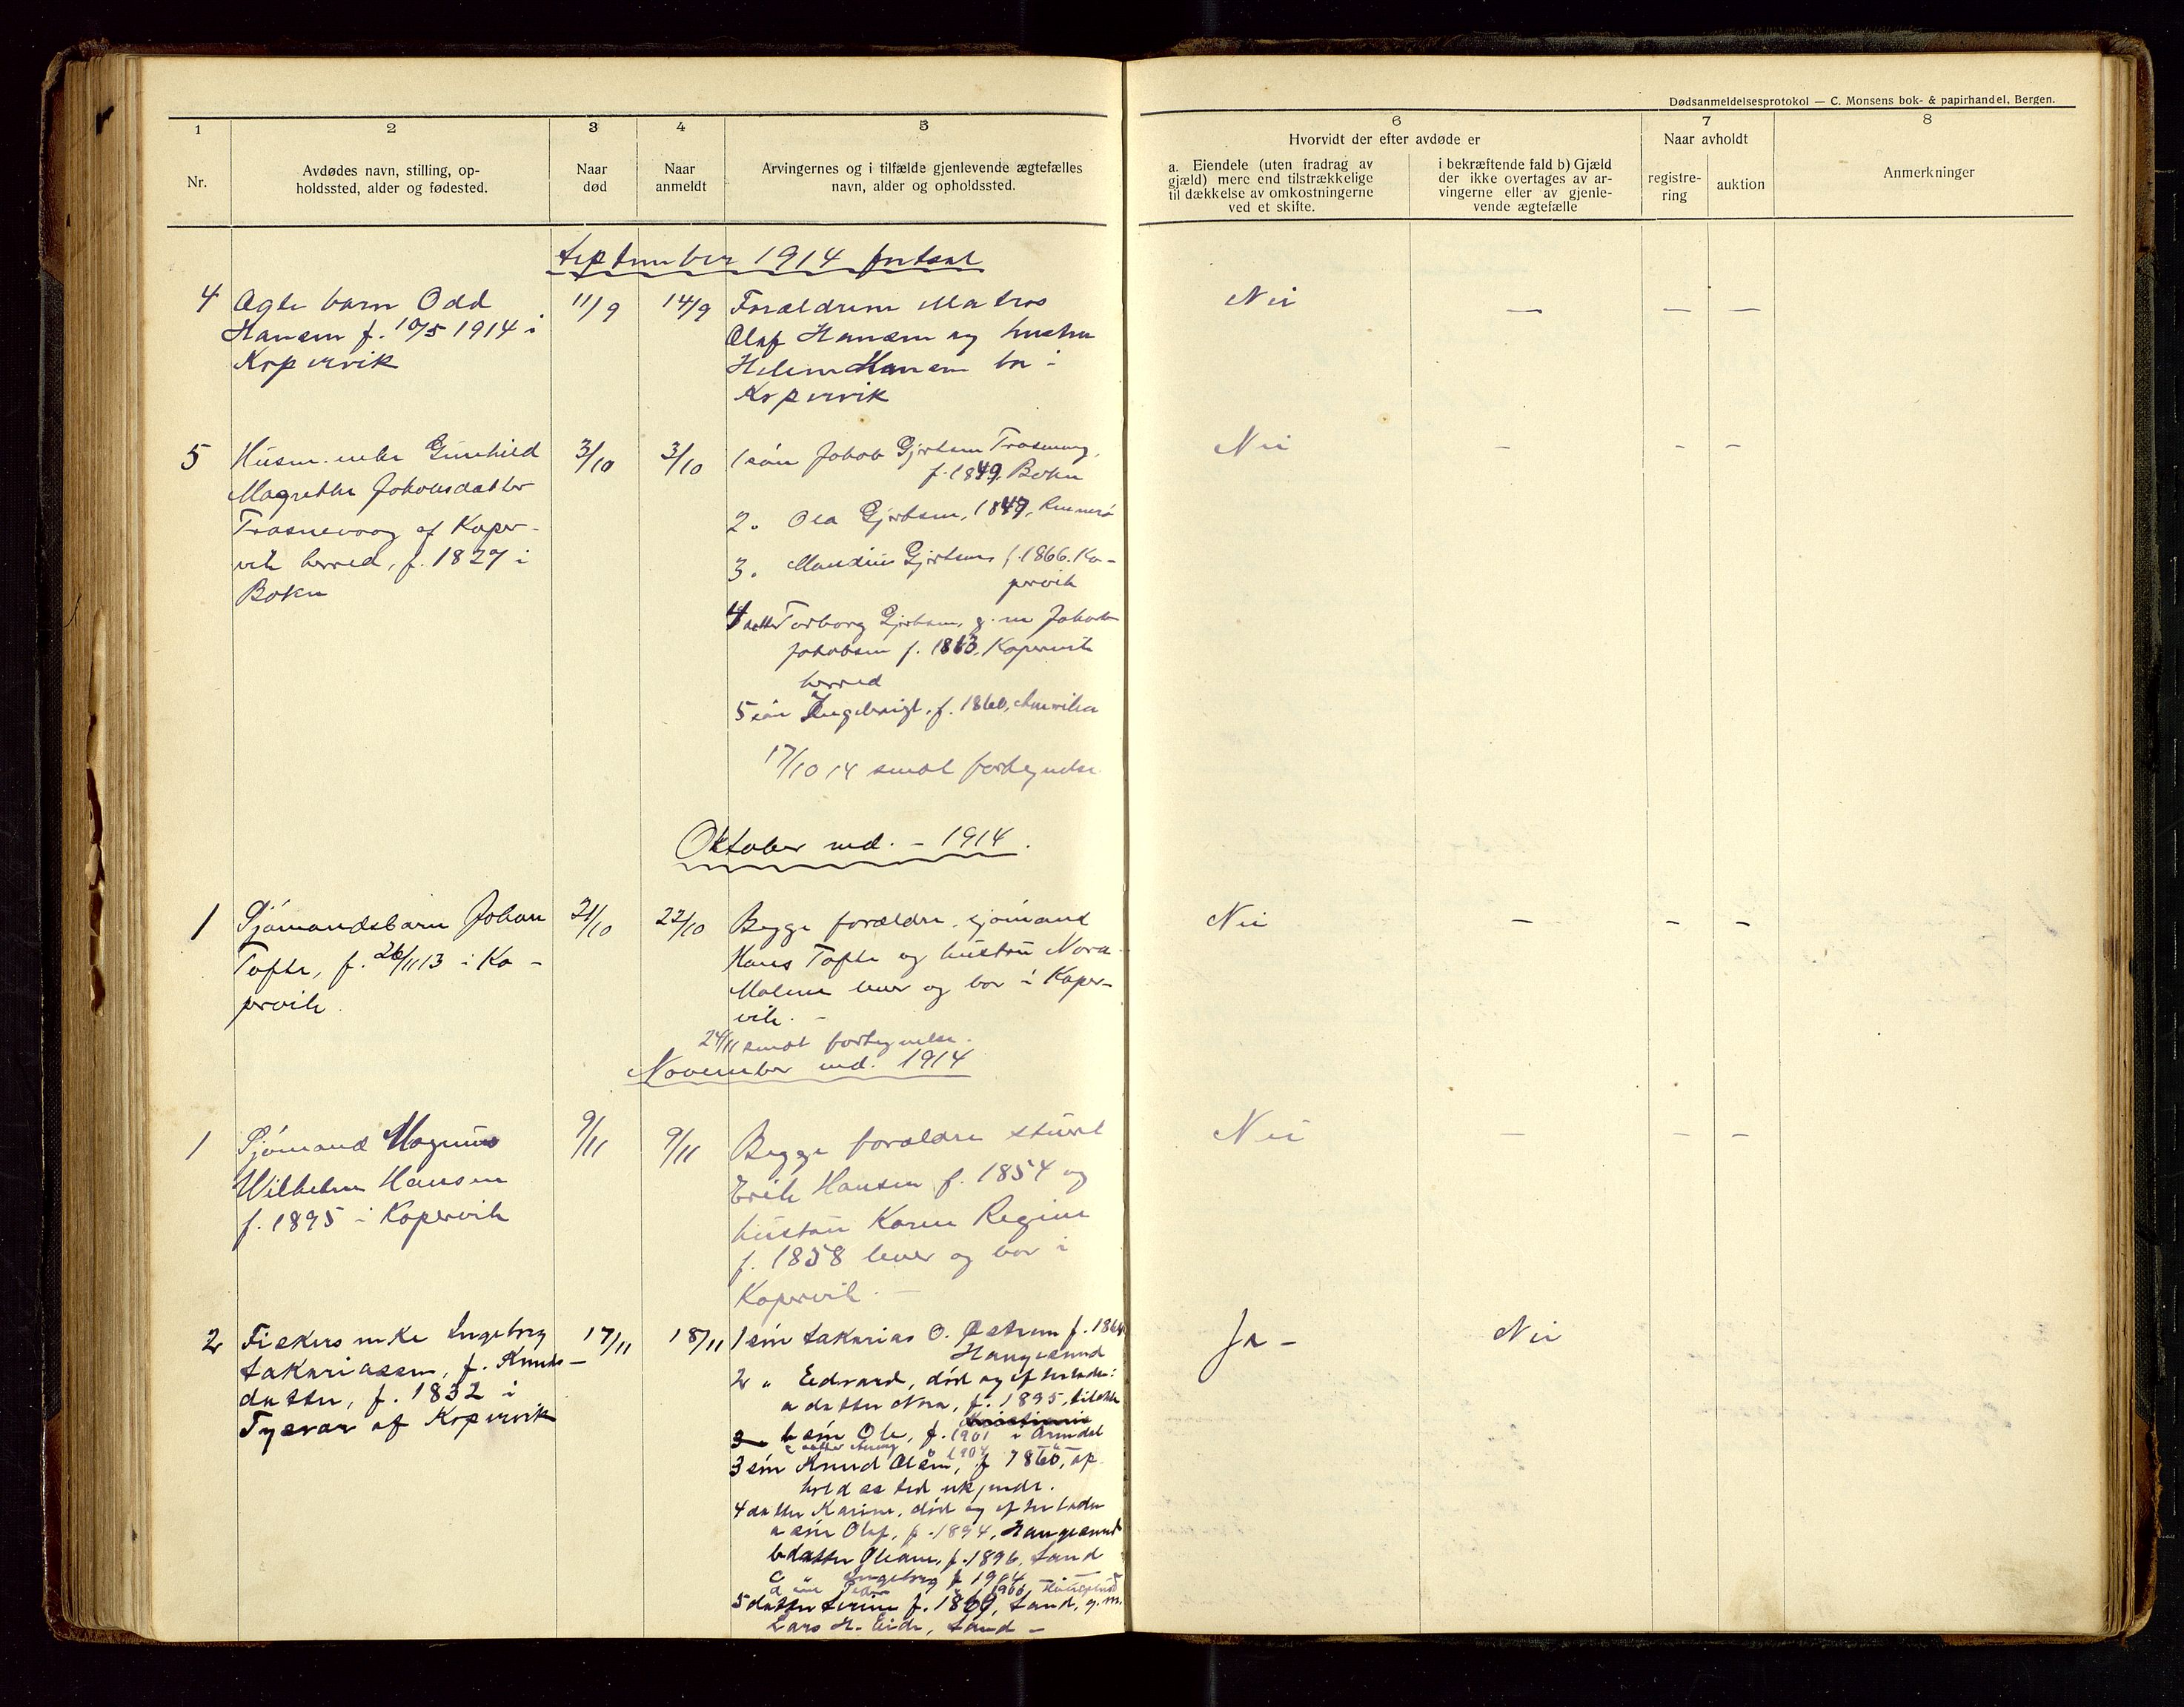 Dødsanmeldelsesprotokol — C. Monsens bok- & papirhandel, Bergen.
1
2
3
4
5
6
7
8
Nr.
Avdødes navn, stilling, op-
holdssted, alder og fødested.
Naar
død
Naar
anmeldt
Arvingernes og i tilfælde gjenlevende ægtefælles
navn, alder og opholdssted.
Hvorvidt der efter avdøde er
a. Eiendele (uten fradrag av
gjæld) mere end tilstrækkelige
til dækkelse av omkostningerne
ved et skifte.
i bekræftende fald b) Gjæld
der ikke overtages av ar-
vingerne eller av gjenle-
vende ægtefælle
Naar avholdt
registre-
ring
auktion
Anmerkninger
September 1914 fortsat
4
Ægte barn Odd
Hansen f. 10/5 1914 i
Kopervik
11/9
14/9
Forældrene Matros
Olaf Hansen og hustru
Helene Hansen bor i
Kopervik
Nei
—
—
—
5
Husm. enke Gunhild
Magrethe Jakobsdatter
Trosnevaag af Koper-
vik herred, f. 1827 i
Bokn
3/10
3/10
1 søn Jakob Gjertsen Trosnevaag,
f. 1849, Bokn
2. Ola Gjertsen, 1847, Rennesø
3. Mandius Gjertsen f. 1866. Ko-
pervik
4 datter Torborg Gjertsen, g. m. Jakob
Jakobsen f. 1863, Kopervik
herred
5 søn Ingebrigt, f. 1860, Amerika
17/10 14 sendt fortegnelse
Nei
-
-
-
Oktober md. - 1914.
1
Sjømandsbarn Johan
Tofte, f. 26/11 13 i Ko-
pervik.
21/10
22/10
Begge forældre, sjømand
Hans Tofte og hustru Nora
Malene lever og bor i Koper-
vik. -
24/11 sendt fortegnelse.
Nei
-
-
-
November md. 1914
1
Sjømand Magnus
Wilhelm Hansen
f. 1895 i Kopervik
9/11
9/11
Begge forældre
Erik Hansen f. 1854 og
hustru Karen Regine
f. 1858 lever og bor i
Kopervik. —
Nei
—
-
-
2
Fiskers enke Ingeborg
Sakariassen, f. Knuds-
datter, f. 1832 i
Tysvær af Kopervik
17/11
18/11
1 søn Sakarias O. f. 1864
Haugesund
2 " Edvard, død og efterlader:
a datter Nora, f. 1895,
b søn Ole, f. 1901 i Arendal
3 søn Knud Olsen, f 1860, op-
holdssted ukjendt.
4 datter Karine, død og efterlader
a søn Olaf, f. 1894, Haugesund
b datter Oleane, f. 1896, Sand
c Ingeborg f 1904 — " —
d søn Peder 1900, Haugesund
5 datter Serine f. 1869, Sand, g. m.
Lars H. Eide, Sand -
Ja -
Nei